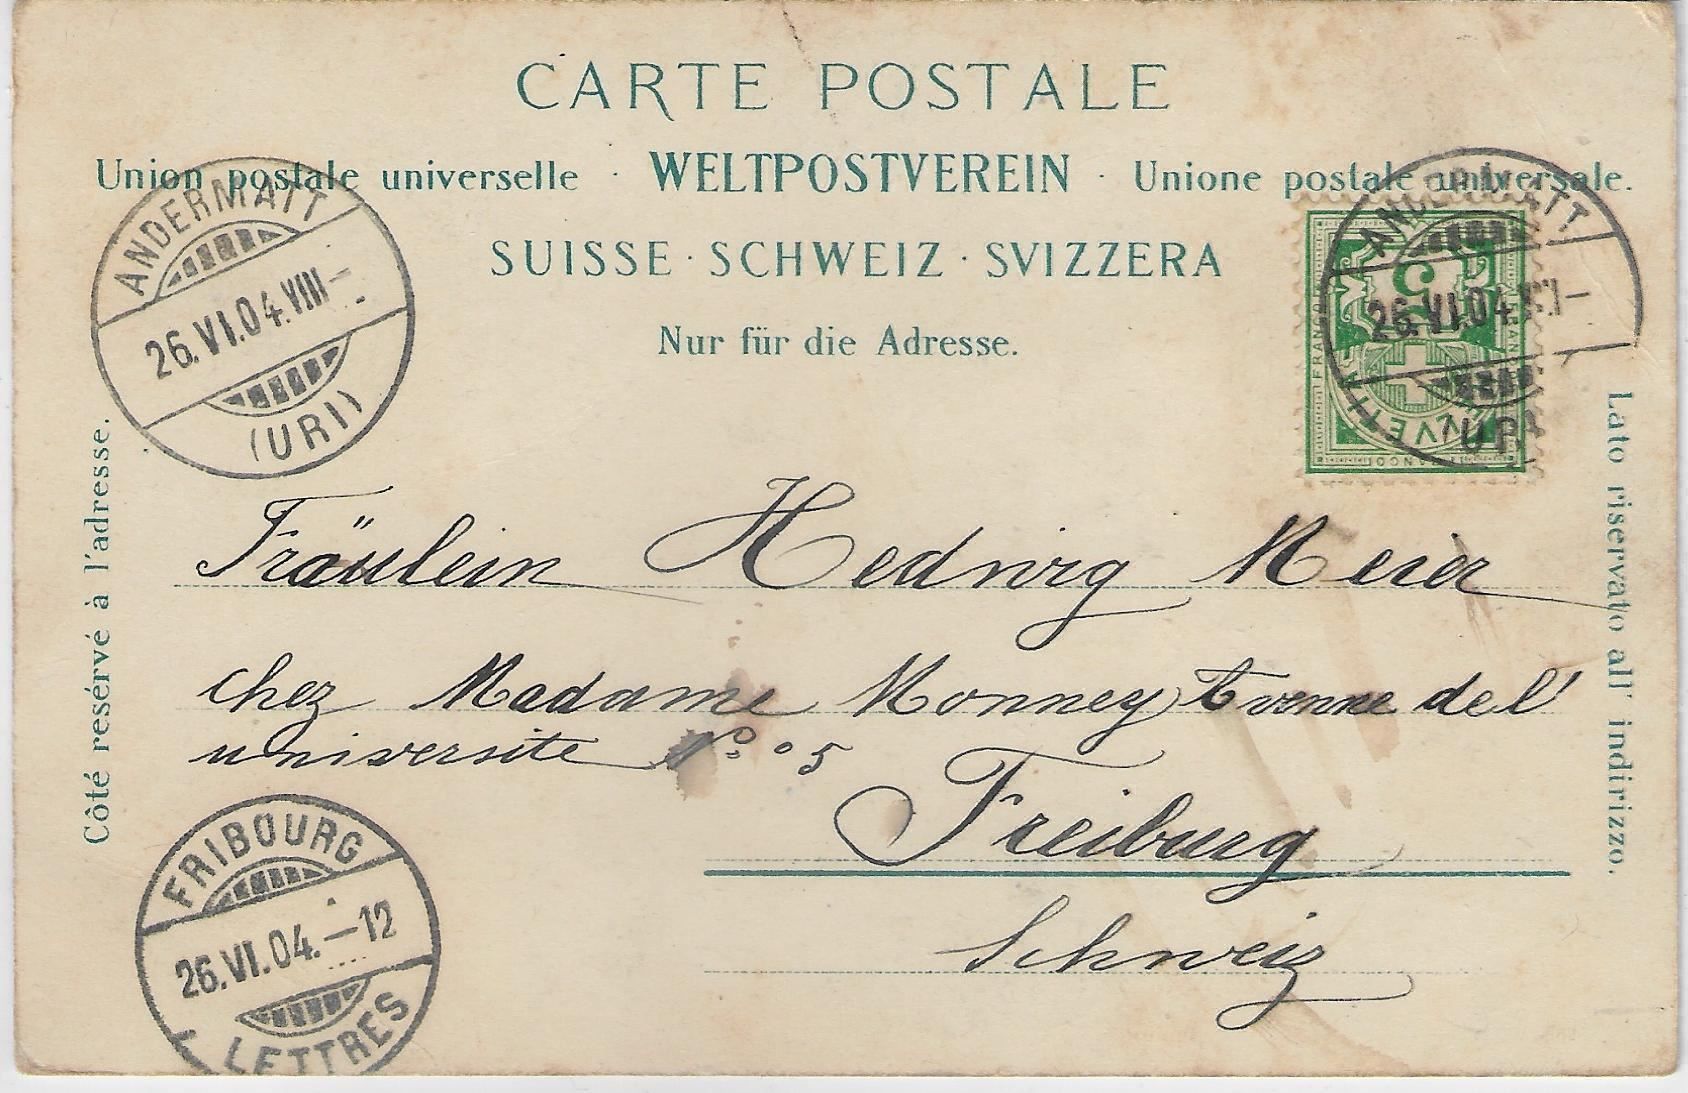 CARTE POSTALE
Union postale universelle · WELTPOSTVEREIN · Unione postale universale.
SUISSE · SCHWEIZ · SVIZZERA
Nur für die Adresse.
ANDERMATT
26.VI.04.VIII–
(URI)
ANDERMATT
26.VI.04.
URI
5
FRANCO
HELVETIA
FRANCO
Côté resérvé à l'adresse.
Lato riservato all' indirizzo.
Fräulein Hedwig Meier
chez Madame Monney Avenue de l'
universite No. 5
Freiburg
Schweiz
FRIBOURG
26.VI.04.–12
LETTRES